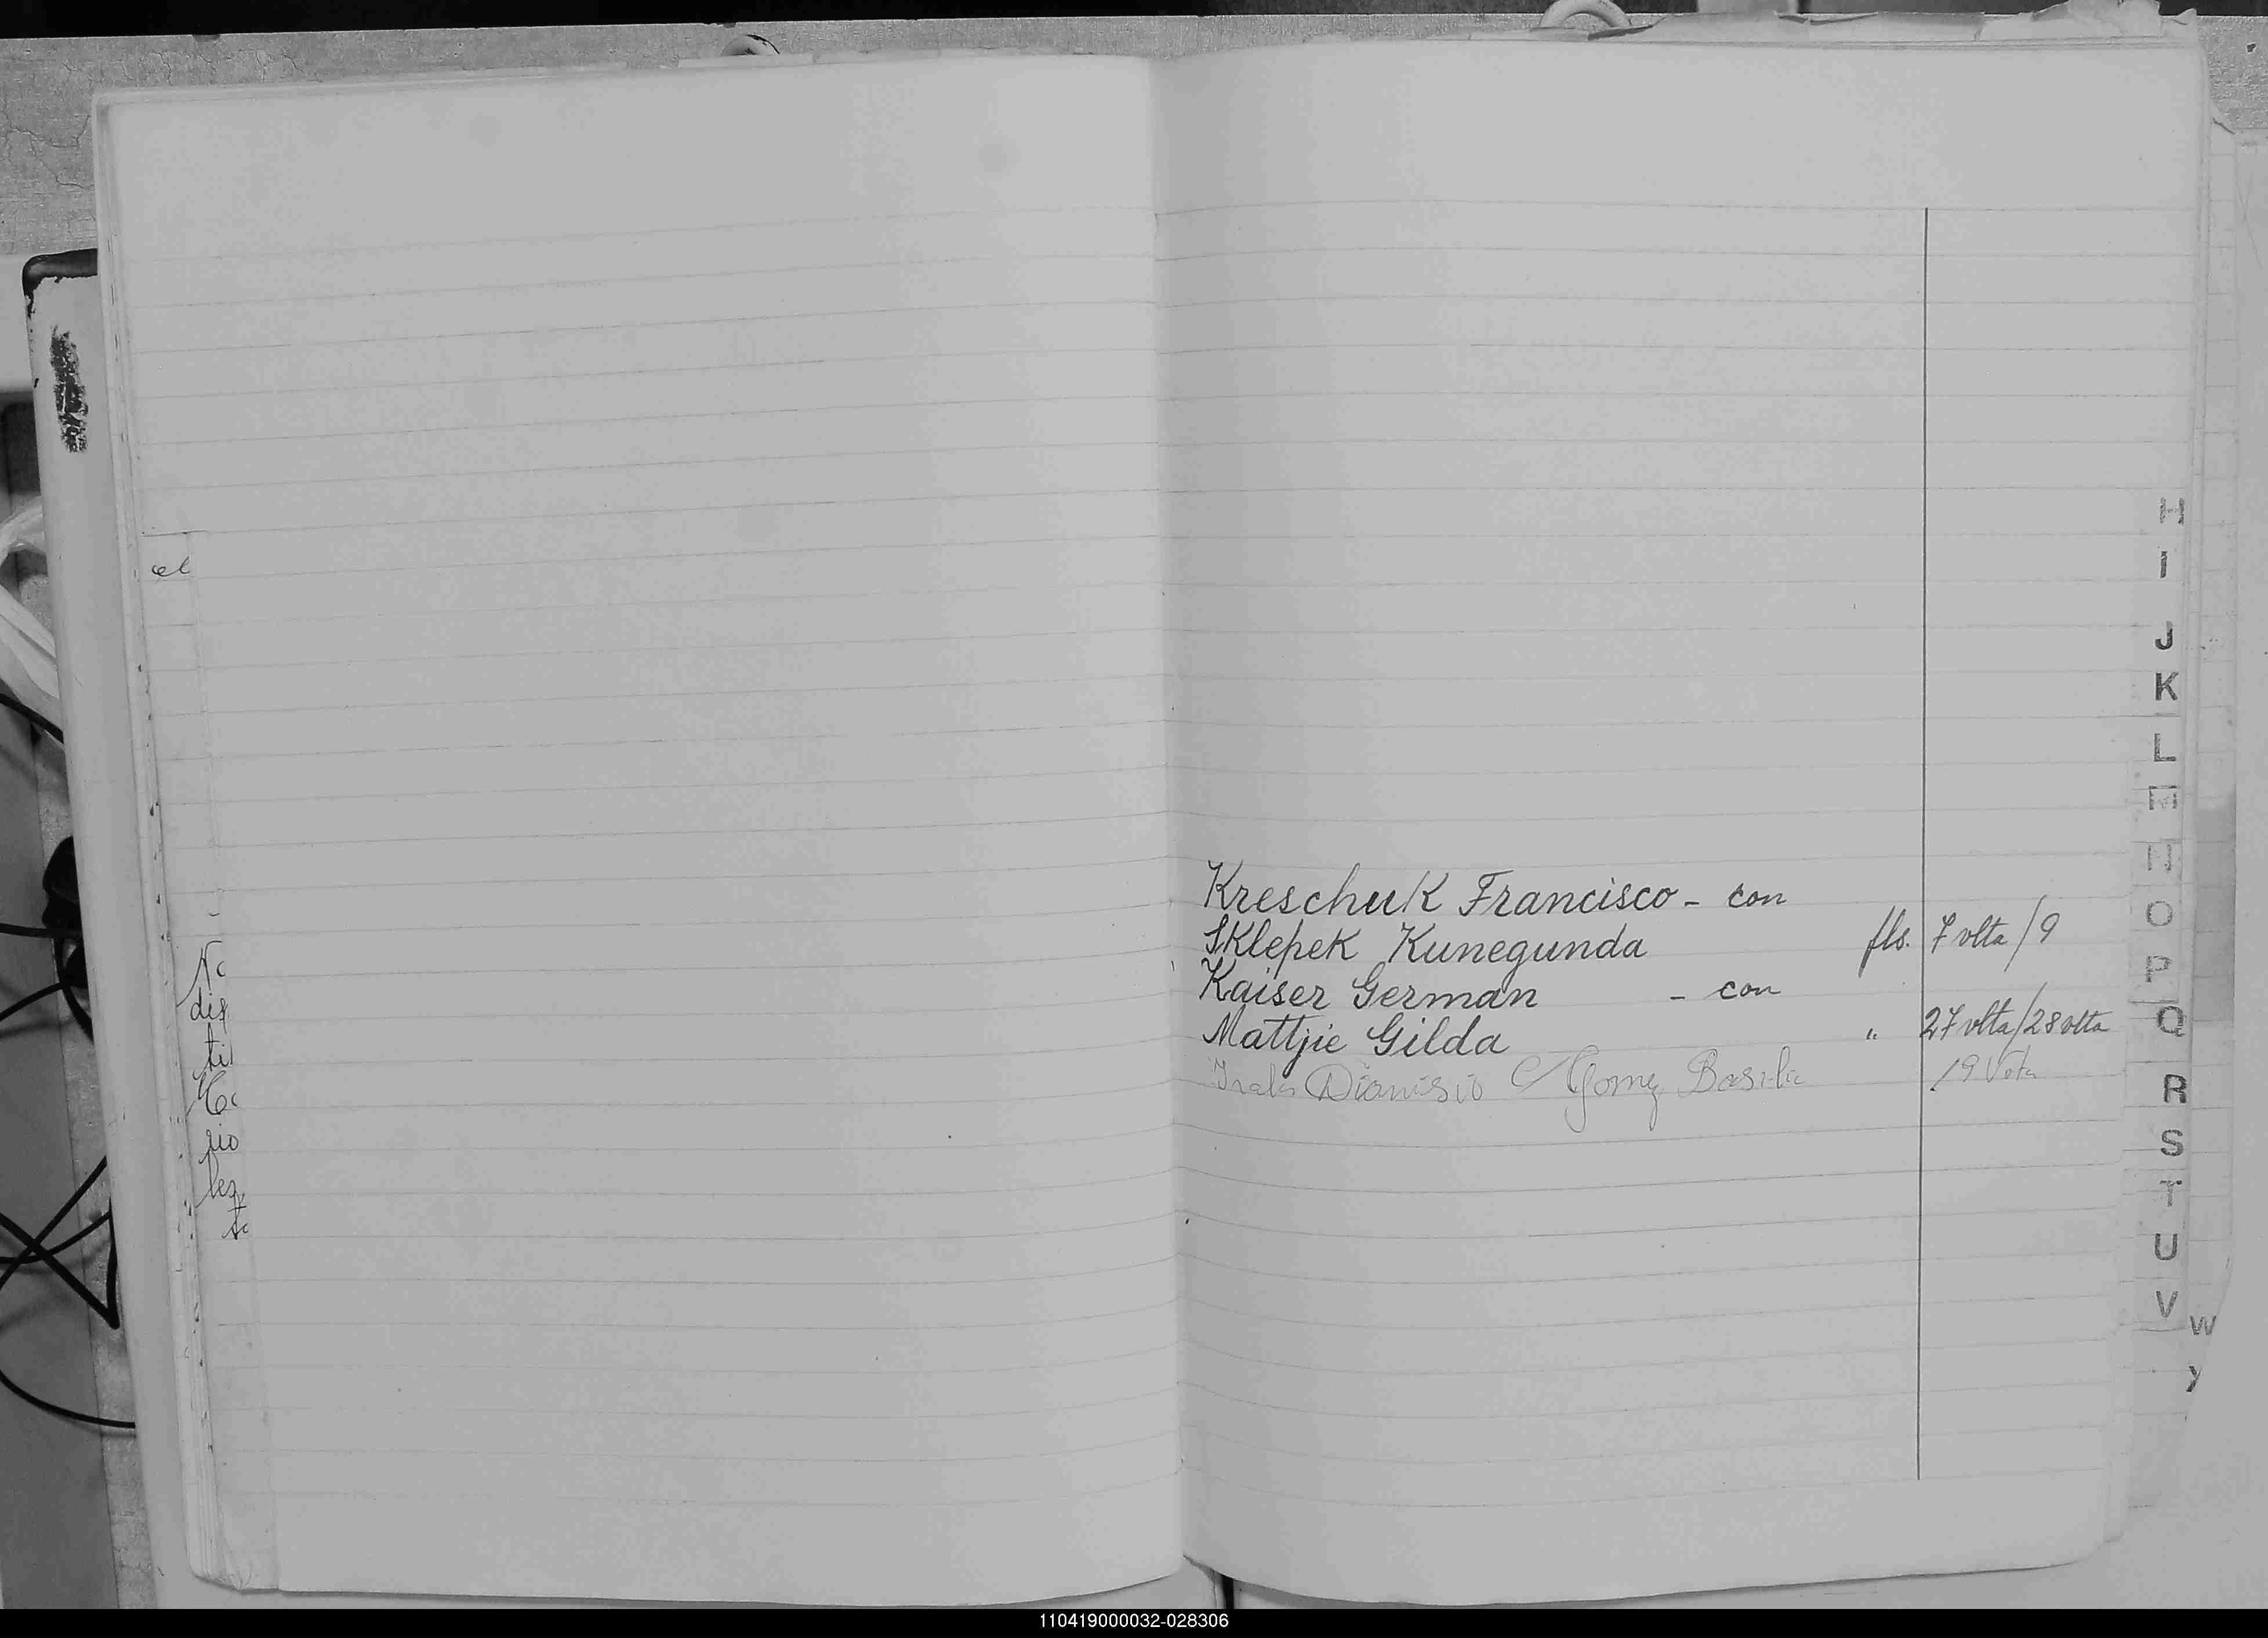 el
Kreschuk Francisco - con
Sklepek Kunegunda fls. 7 vlta/9
Kaiser German - con
Mattjie Gilda " 27 vlta/28 vlta
Dionisio c/ Gomez Basilia 19 Vta
H
I
J
K
L
M
N
O
P
Q
R
S
T
U
V
W
Y
110419000032-028306